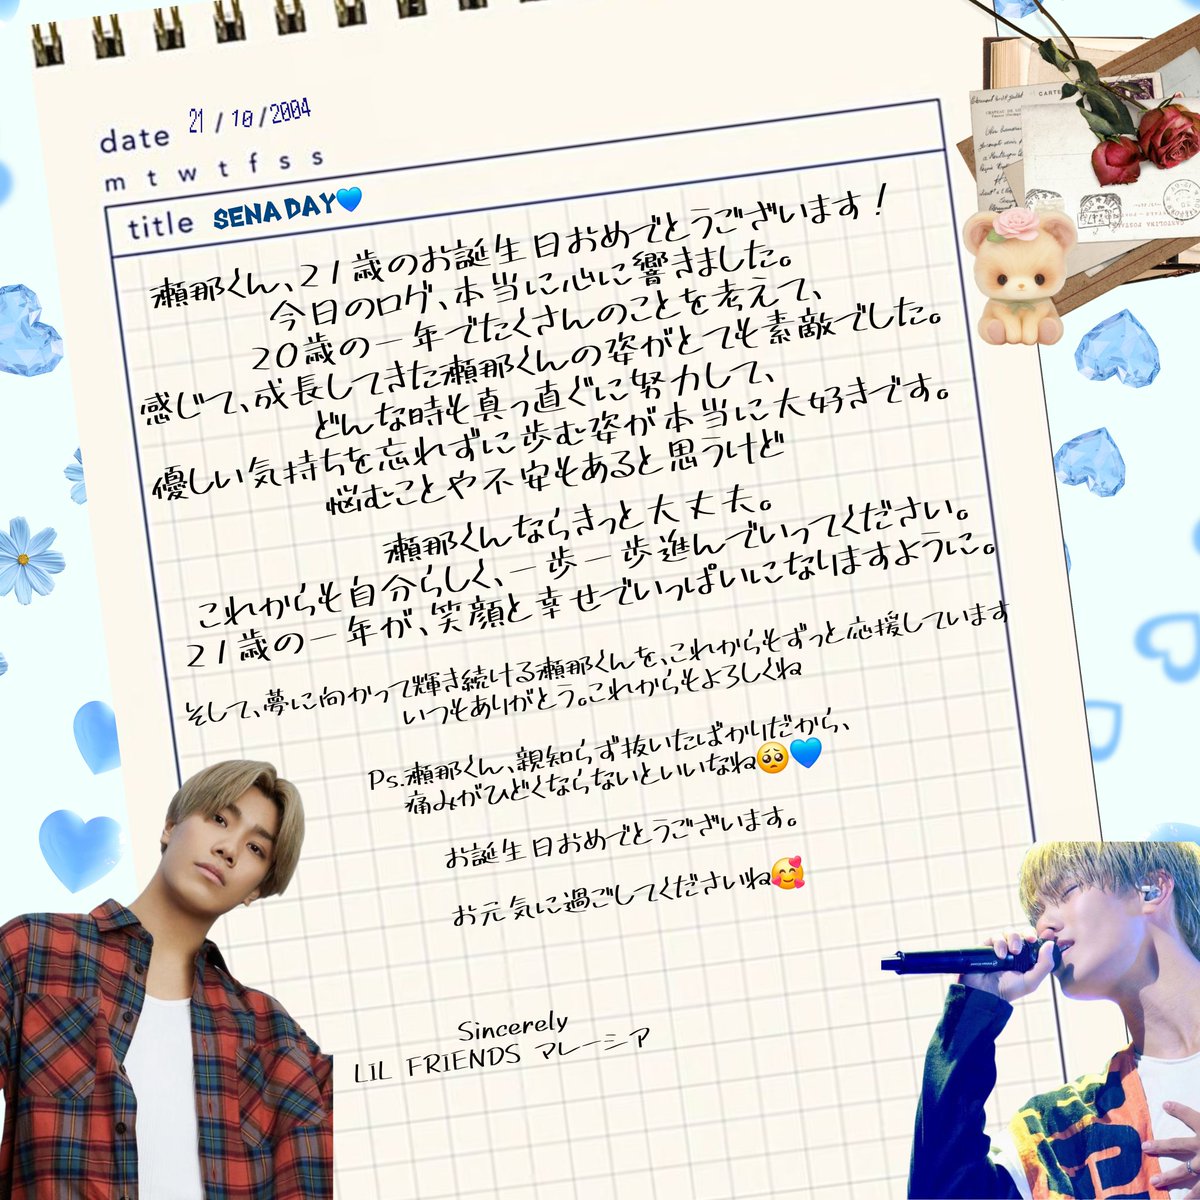 date 21/10/2004
m t w t f s s
title SENA DAY💙
瀬那くん、21歳のお誕生日おめでとうございます！
今日のログ、本当に心に響きました。
20歳の一年でたくさんのことを考えて、
感じて、成長してきた瀬那くんの姿がとても素敵でした。
どんな時も真っ直ぐに努力して、
優しい気持ちを忘れずに歩む姿が本当に大好きです。
悩むことや不安もあると思うけど
瀬那くんならきっと大丈夫。
これからも自分らしく、一歩一歩進んでいってください。
21歳の一年が、笑顔と幸せでいっぱいになりますように。
そして、夢に向かって輝き続ける瀬那くんを、これからもずっと応援しています
いつもありがとう。これからもよろしくね
Ps.瀬那くん、親知らず抜いたばかりだから、
痛みがひどくならないといいなね🥺💙
お誕生日おめでとうございます。
お元気に過ごしてくださいね🥰
Sincerely
LIL FRIENDS マレーシア